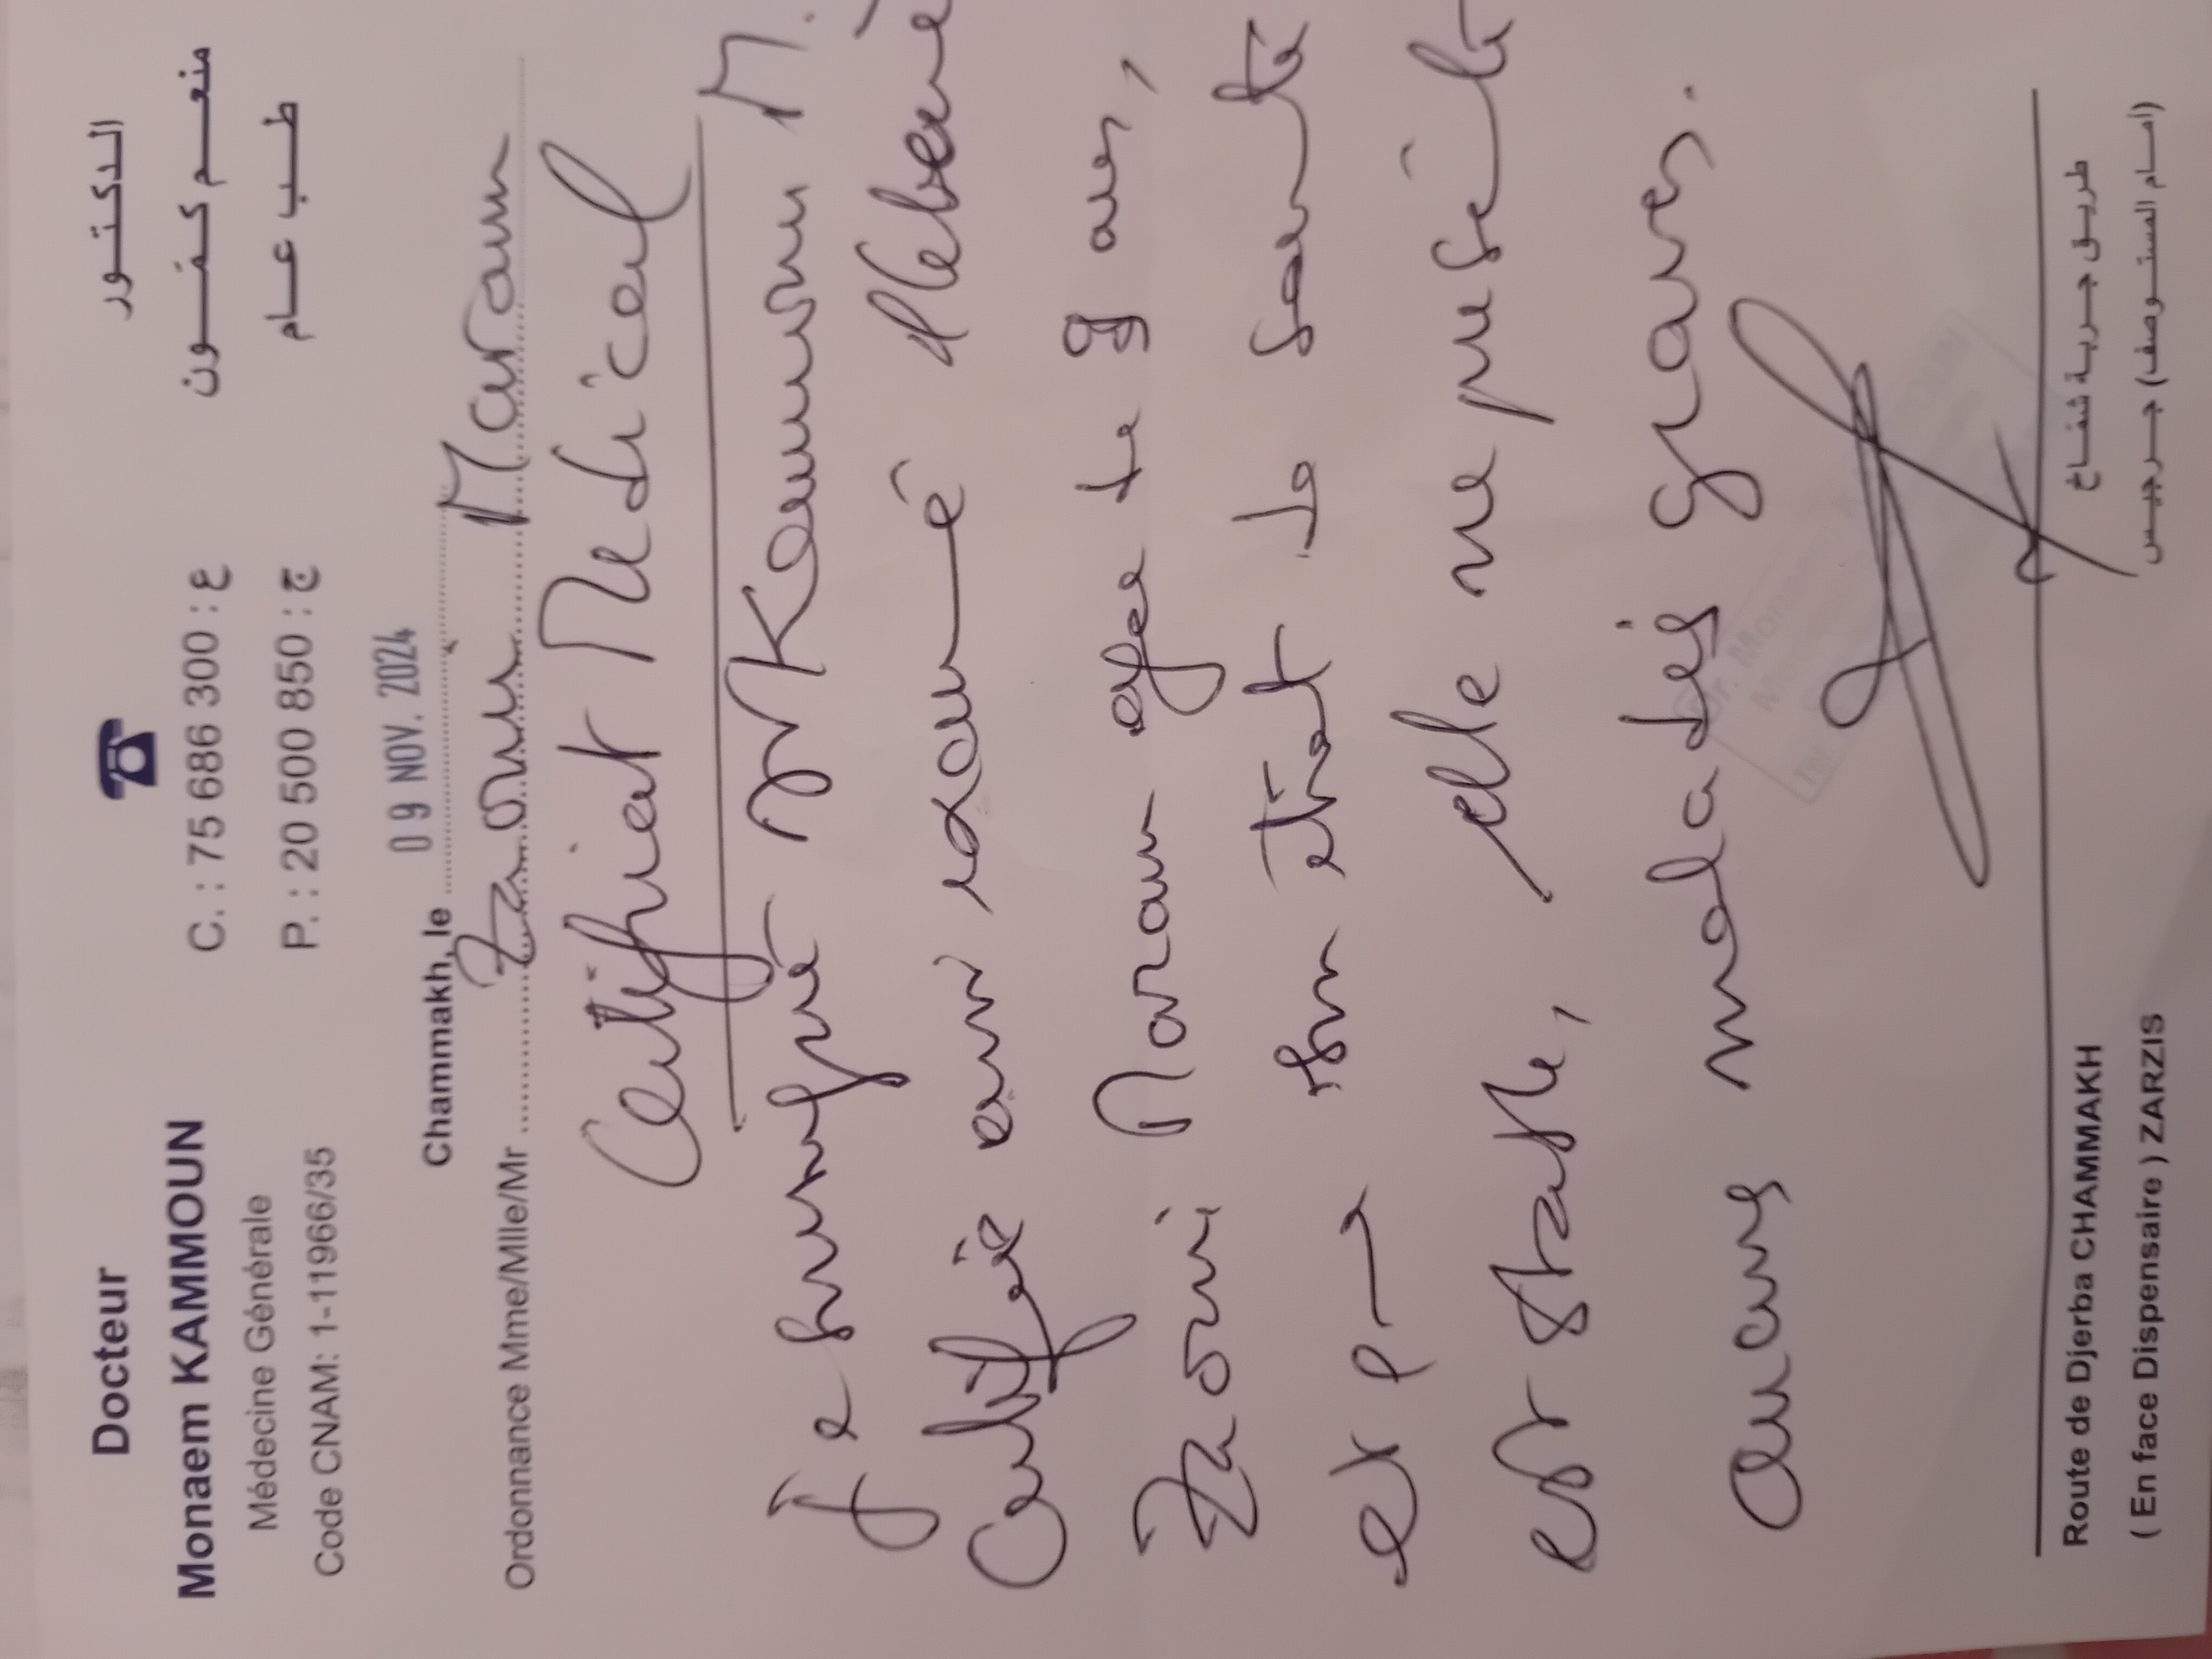 Docteur
Monaem KAMMOUN
Médecine Générale
Code CNAM: 1-11966/35
☎
C. : 75 686 300 : ع
P. : 20 500 850 : ج
الدكتور
منعم كمون
طب عام
Chammakh, le 09 NOV. 2024
Ordonnance Mme/Mlle/Mr Zaoui Maram
Certificat Médical
Je soussigné Dr Kammoun M.
Certifie avoir examiné
Zaoui Maram agée de 9 ans,
et son état de santé
est stable, elle ne présente
aucune maladie grave.
Dr. Monaem
Route de Djerba CHAMMAKH
( En face Dispensaire ) ZARZIS
طريق جربة شماخ
(أمام المستوصف) جرجيس